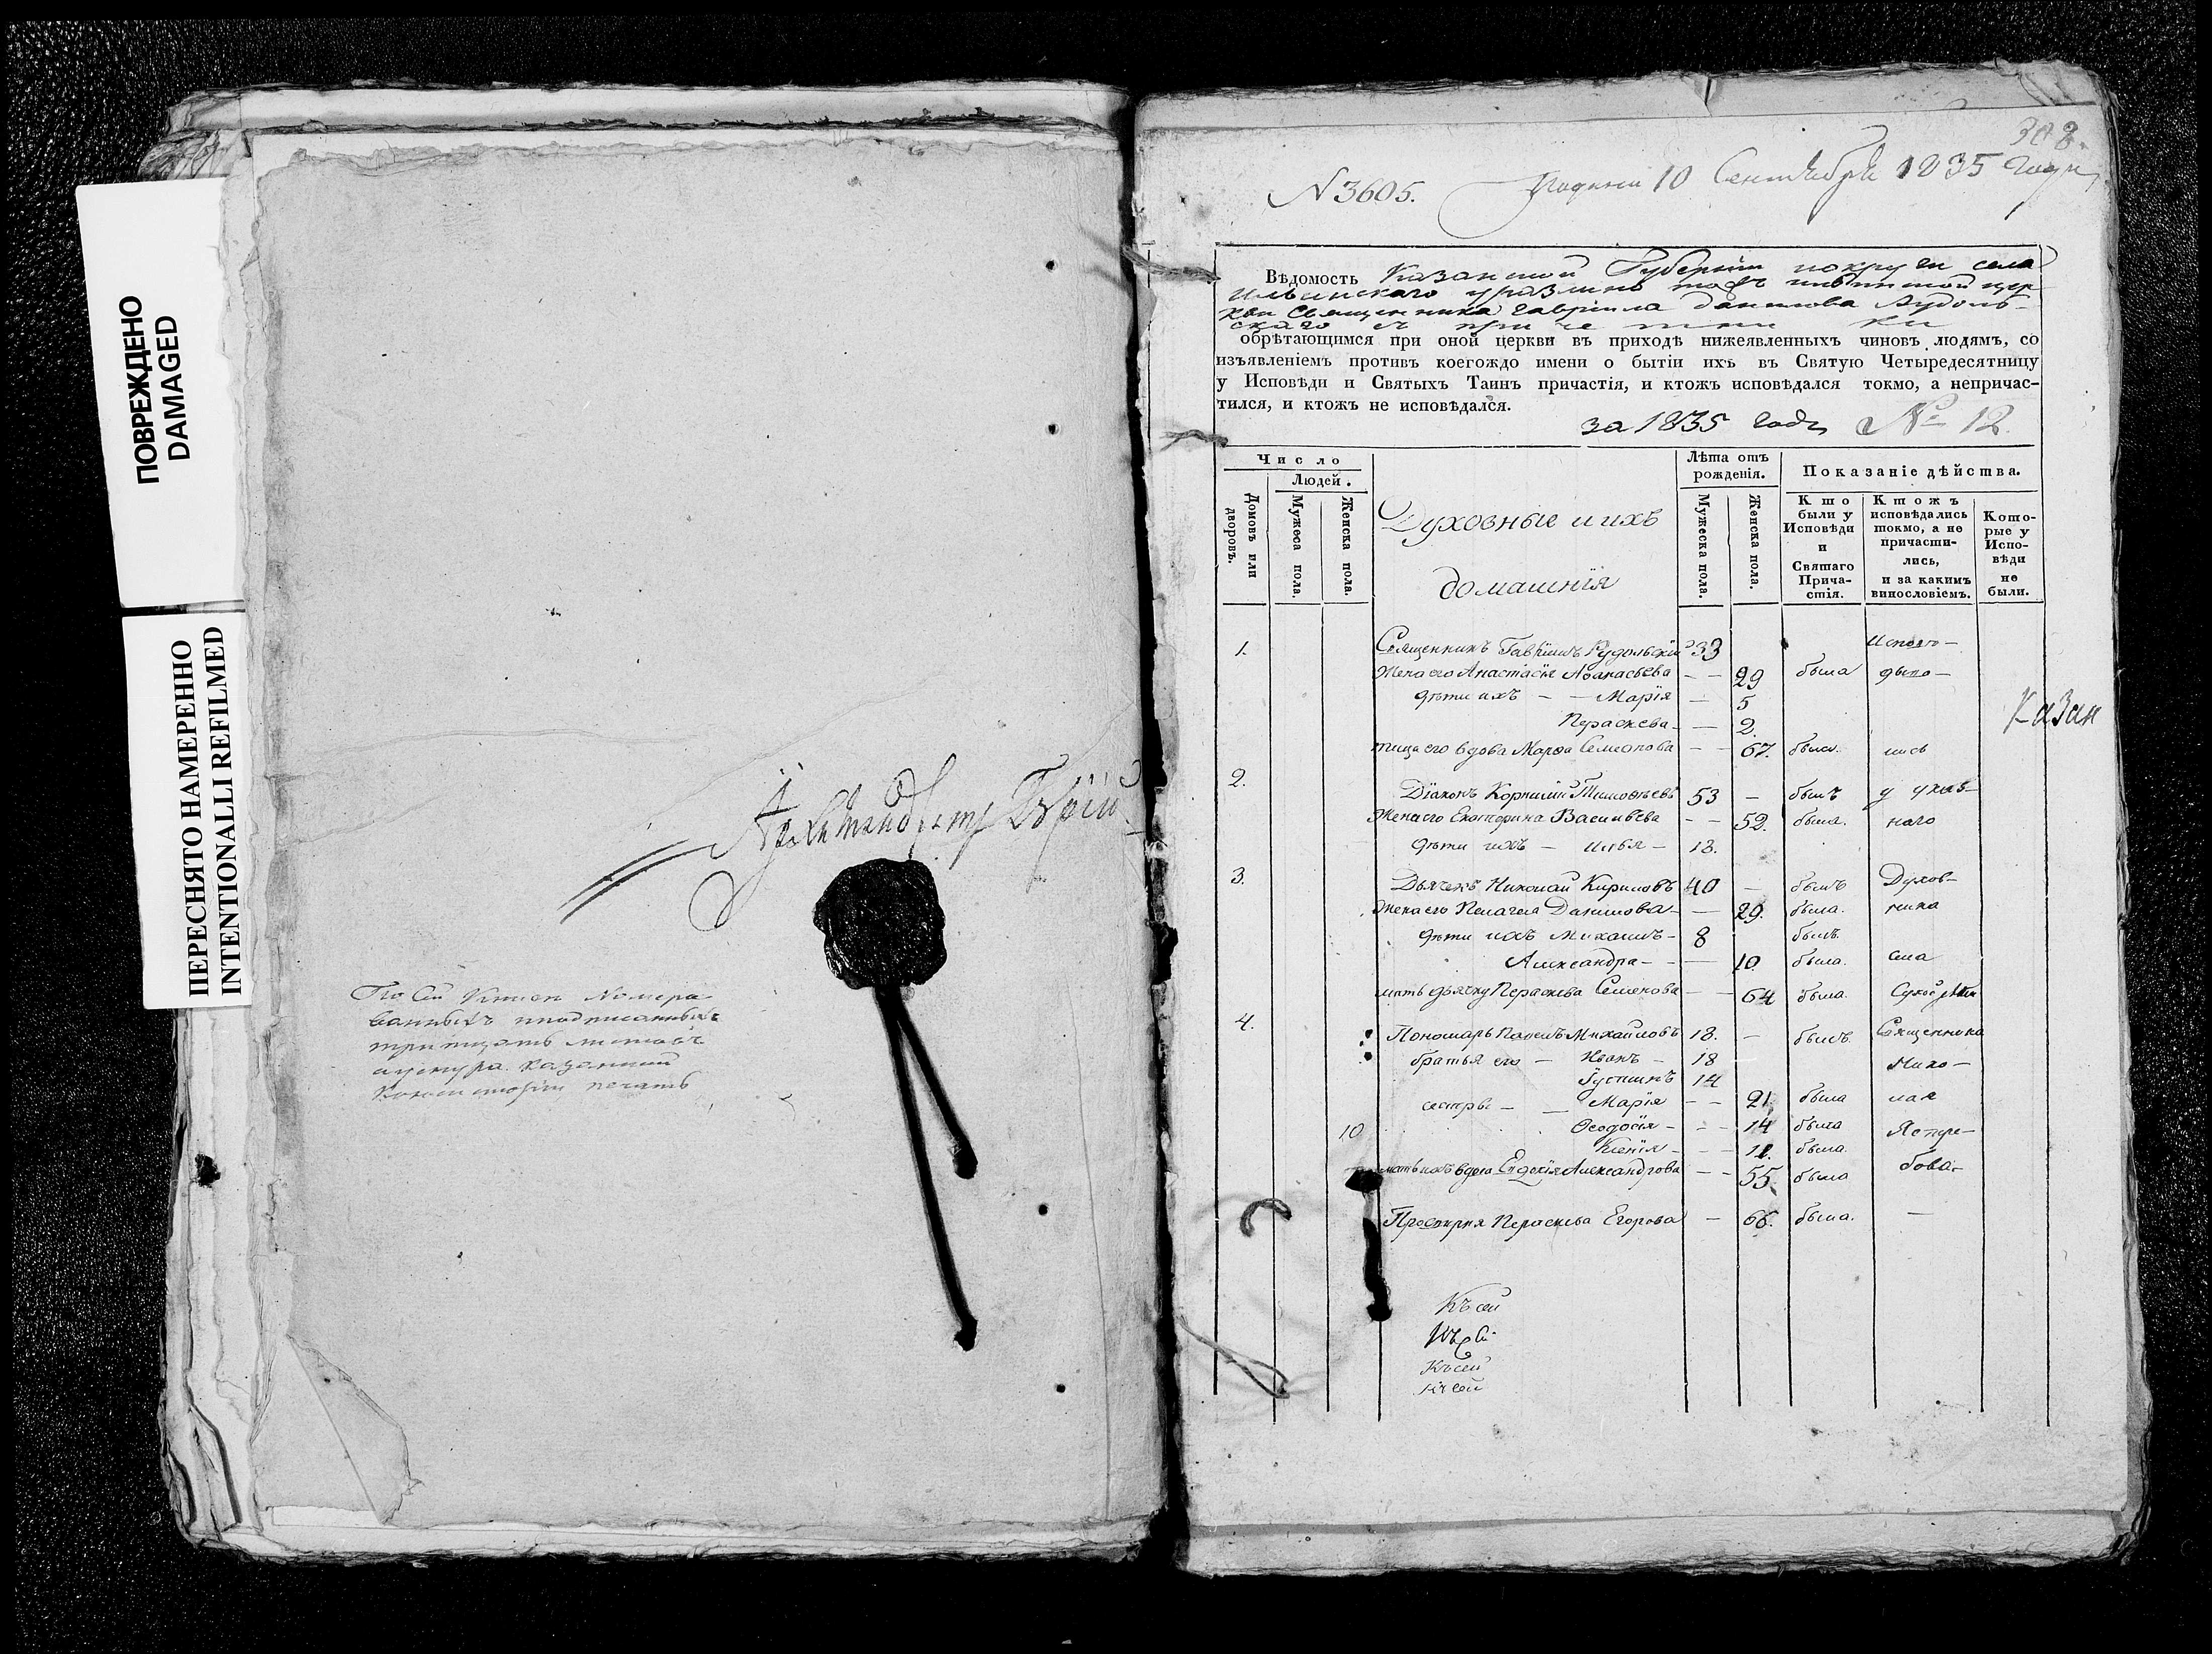 ПОВРЕЖДЕНО
DAMAGED
ПЕРЕСНЯТО НАМЕРЕННО
INTENTIONALLI REFILMED
По сей Книги Номера
ванныхъ
листовъ
печать
308.
N 3605. 10 Сентября 1835 Года
Вѣдомость Казанской Губернiи села
Ильинскаго цер
кви Священника Гаврiила Данилова Рудоль-
скаго съ причетники
обрѣтающимся при оной церкви въ приходѣ нижеявленныхъ чиновъ людямъ, со
изъявленiемъ противъ коегождо имени о бытiи ихъ въ Святую Четыредесятницу
у Исповѣди и Святыхъ Таинъ причастiя, и ктожъ исповѣдался токмо, а непричас-
тился, и ктожъ не исповѣдался.
за 1835 годъ № 12.
Число
Людей.
Домовъ или дворовъ.
Мужеса пола.
Женска пола.
Духовные и ихъ
домашнiя
Лѣта отъ рожденiя.
Мужеска пола.
Женска пола.
Показанiе дѣйства.
Кто были у Исповѣди и Святаго Причастiя.
Ктожъ исповѣдались токмо, а не причастились, и за какимъ винословiемъ.
Которые у Исповѣди не были.
1. Священникъ Гаврiилъ Рудольскiй 33
Жена его Анастасiя Аѳанасьева - - 29 была
дѣти ихъ - - Марiя - 5
Параскева - - 2.
Казан
его вдова Марѳа Семионова - - 67. была лись
2. Дiаконъ Корнилiй Тимоѳеевъ 53 - былъ у
Жена его Екатерина Васильева - - 52. была.
дѣти ихъ - Илья - 18.
3. Дьячекъ Николай Кириловъ 40 - былъ Духов-
Жена его Пелагея Данилова - - 29. была. ника
дѣти ихъ Михаилъ - 8 былъ.
Александра - - 10. была. села
мать дьячку Параскева Семенова - - 64 была.
4. Пономарь Павелъ Михайловъ 18. - былъ. Священника
братья его - Иванъ - 18 Нико-
Густинъ 14
сестры - - Марiя - - 21. была лая
10 Ѳеодосiя - - - 14 была Ястре-
Ксенiя - - - 11. была.
мать ихъ вдова Евдокiя Александрова - - 55. была бова.
Просвирня Параскева Егорова - 66. была. -
Къ сей
Къ сей
Къ сей
Къ сей